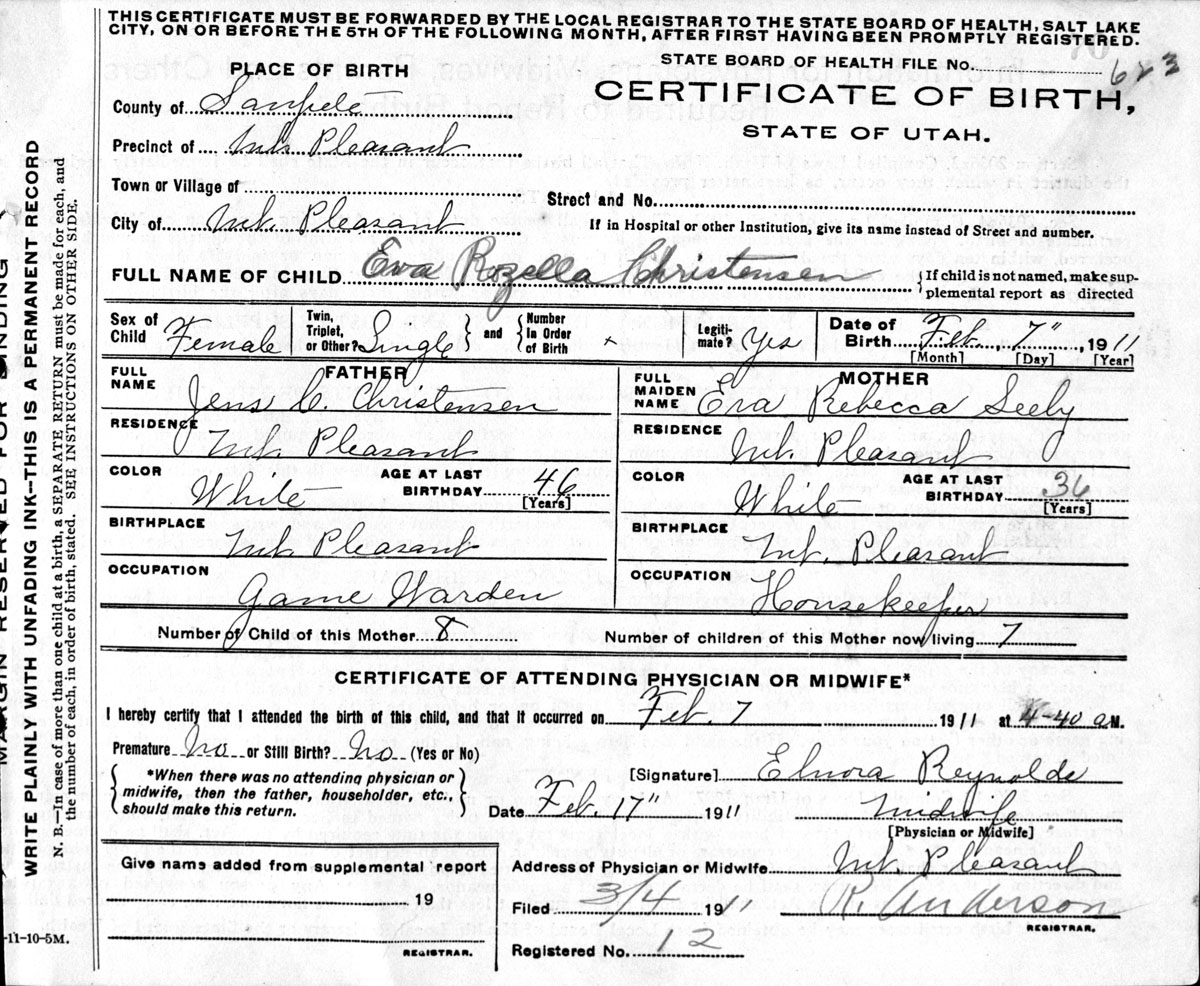 THIS CERTIFICATE MUST BE FORWARDED BY THE LOCAL REGISTRAR TO THE STATE BOARD OF HEALTH, SALT LAKE
CITY, ON OR BEFORE THE 5TH OF THE FOLLOWING MONTH, AFTER FIRST HAVING BEEN PROMPTLY REGISTERED.
STATE BOARD OF HEALTH FILE No. 623
PLACE OF BIRTH
CERTIFICATE OF BIRTH,
STATE OF UTAH.
County of Sanpete
Precinct of Mt. Pleasant
Town or Village of
Street and No.
City of Mt. Pleasant
If in Hospital or other Institution, give its name instead of Street and number.
FULL NAME OF CHILD Eva Rozella Christensen {If child is not named, make sup-
plemental report as directed
Sex of Child Female Twin, Triplet, or Other? Single } and { Number In Order of Birth × Legiti-mate? Yes Date of Birth Feb. 7", 1911
[Month] [Day] [Year]
FATHER
FULL NAME Jens C. Christensen
RESIDENCE Mt. Pleasant
COLOR White AGE AT LAST BIRTHDAY 46 [Years]
BIRTHPLACE Mt. Pleasant
OCCUPATION Game Warden
MOTHER
FULL MAIDEN NAME Eva Rebecca Seely
RESIDENCE Mt. Pleasant
COLOR White AGE AT LAST BIRTHDAY 36 [Years]
BIRTHPLACE Mt. Pleasant
OCCUPATION Housekeeper
Number of Child of this Mother 8 Number of children of this Mother now living 7
CERTIFICATE OF ATTENDING PHYSICIAN OR MIDWIFE*
I hereby certify that I attended the birth of this child, and that it occurred on Feb. 7 1911 at 4-40 a M.
Premature No or Still Birth? No (Yes or No)
{*When there was no attending physician or
midwife, then the father, householder, etc.,
should make this return.}
[Signature] Elnora Reynolds
Date Feb. 17" 1911 Midwife
[Physician or Midwife]
Give name added from supplemental report
19
REGISTRAR.
Address of Physician or Midwife Mt. Pleasant
Filed 3/4 1911 R. Anderson
REGISTRAR.
Registered No. 12
-11-10-5M.
MARGIN RESERVED FOR BINDING
WRITE PLAINLY WITH UNFADING INK—THIS IS A PERMANENT RECORD
N. B.—In case of more than one child at a birth, a SEPARATE RETURN must be made for each, and
the number of each, in order of birth, stated. SEE INSTRUCTIONS ON OTHER SIDE.